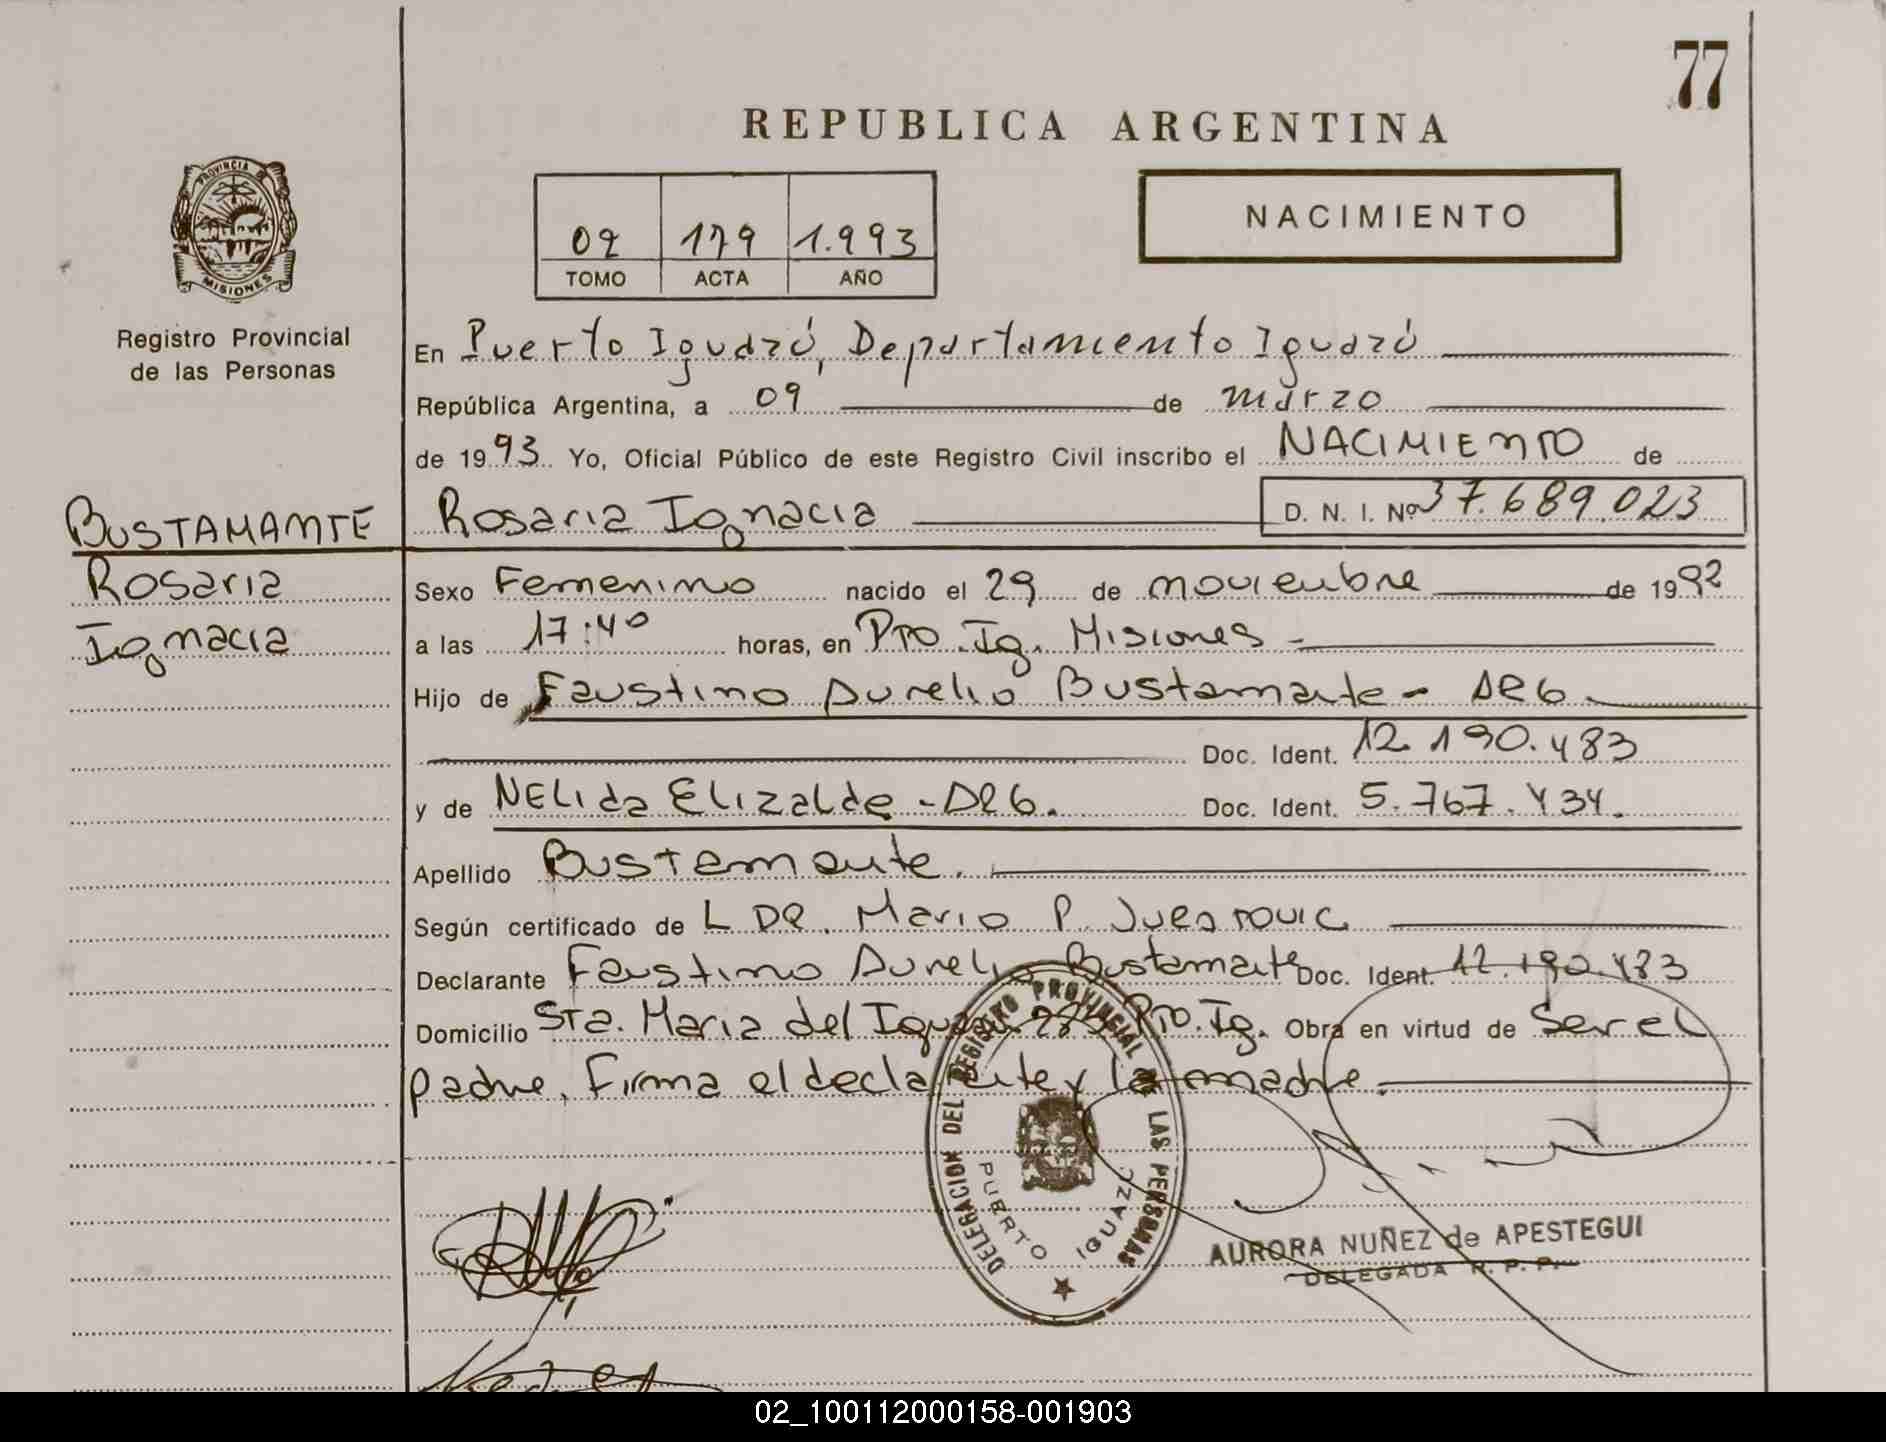 77
REPUBLICA ARGENTINA
PROVINCIA DE
MISIONES
Registro Provincial
de las Personas
02 179 1.993
TOMO ACTA AÑO
NACIMIENTO
En Puerto Iguazú, Departamiento Iguazú
República Argentina, a 09 de marzo
de 1993. Yo, Oficial Público de este Registro Civil inscribo el NACIMIENTO de
BUSTAMANTE
Rosaria Ignacia D. N. I. Nº 37.689.023
Rosaria
Ignacia
Sexo Femenino nacido el 29 de noviembre de 1992
a las 17:40 horas, en Pto. Ig. Misiones -
Hijo de Faustino Aurelio Bustamante - ARG.
Doc. Ident. 12.190.483
y de NELida Elizalde - ARG. Doc. Ident. 5.767.434.
Apellido Bustamante.
Según certificado de L DR. Mario P.
Declarante Faustino Aurelio Bustamante Doc. Ident. 12.190.483
Domicilio Sta. Maria del Pto. Ig. Obra en virtud de Ser el
padre. Firma el declarante y la madre.
DELEGACION DEL REGISTRO PROVINCIAL DE LAS PERSONAS
PUERTO IGUAZU
AURORA NUÑEZ de APESTEGUI
DELEGADA R. P. P.
02_100112000158-001903